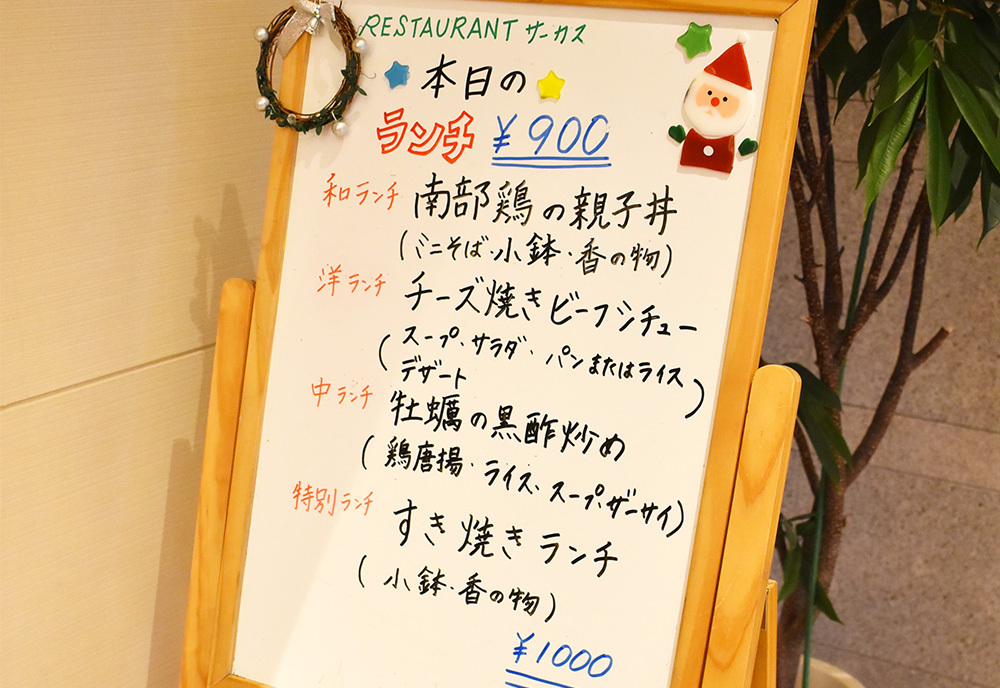 RESTAURANT サーカス
本日の
ランチ ¥900
和ランチ 南部鶏の親子丼
(ミニそば・小鉢・香の物)
洋ランチ チーズ焼きビーフシチュー
(スープ・サラダ・パンまたはライス
デザート)
中ランチ 牡蠣の黒酢炒め
(鶏唐揚・ライス・スープ・ザーサイ)
特別ランチ すき焼きランチ
(小鉢・香の物)
¥1000